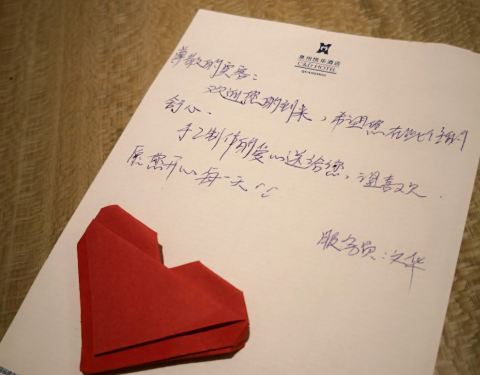 泉州悦华酒店
C&D HOTEL
QUANZHOU
尊敬的宾客：
欢迎您的到来，希望您在此
舒心．
手工制作的爱心送给您，望喜欢．
愿您开心每一天
服务员：文华